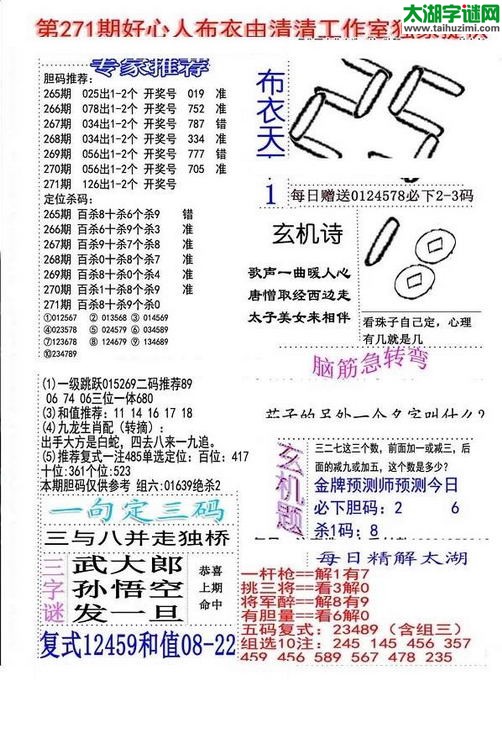 太湖字谜网
www.taihuzimi.com
第271期好心人布衣由清清工作室独家提供
专家推荐
胆码推荐:
265期 025出1-2个 开奖号 019 准
266期 078出1-2个 开奖号 752 准
267期 034出1-2个 开奖号 787 错
268期 034出1-2个 开奖号 334 准
269期 056出1-2个 开奖号 777 错
270期 056出1-2个 开奖号 705 准
271期 126出1-2个 开奖号
定位杀码:
265期 百杀8十杀6个杀9 错
266期 百杀6十杀9个杀3 准
267期 百杀6十杀7个杀9 准
268期 百杀7十杀3个杀8 准
269期 百杀8十杀9个杀4 准
270期 百杀1十杀9个杀8 准
271期 百杀8十杀9个杀0
①012567 ②013568 ③014569
④023578 ⑤024579 ⑥034589
⑦123678 ⑧124679 ⑨134689
⑩234789
布衣天
1
每日赠送0124578必下2-3码
玄机诗
歌声一曲暖人心
唐僧取经西边走
太子美女来相伴
看珠子自己定,心理
有几就是几
脑筋急转弯
茄子的另外一个名字叫什么?
(1)一级跳跃015269二码推荐89
06 74 06三位一体680
(3)和值推荐: 11 14 16 17 18
(4)九龙生肖配(转摘):
出手大方是白蛇,四去八来一九追。
(5)推荐复式一注485单选定位: 百位: 417
十位:361个位:523
本期胆码仅供参考 组六:01639绝杀2
玄机题
三二七这三个数,前面加一或减三,后
面的减九或加五,这个数是多少?
金牌预测师预测今日
必下胆码: 2 6
杀1码: 8
一句定三码
三与八并走独桥
三字谜
武大郎
孙悟空
发一旦
恭喜
上期
命中
复式12459和值08-22
每日精解太湖
一杆枪==解1有7
挑三将==看3解0
将军醉==解8有9
有胆量==看6解0
五码复式: 23489 (含组三)
组选10注: 245 145 456 357
459 456 589 567 478 235